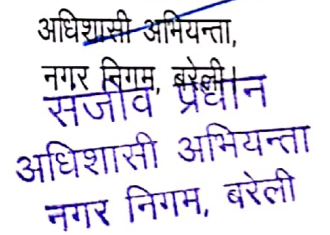 अधिशासी अभियन्ता,
नगर निगम, बरेली।
संजीव प्रधान
अधिशासी अभियन्ता
नगर निगम, बरेली